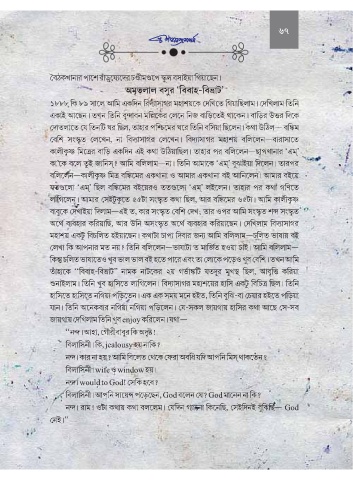 ৬৭
বৈঠকখানার পাশে বাঁড়ুয্যেদের চণ্ডীমণ্ডপে স্কুল বসাইয়া গিয়াছেন।
অমৃতলাল বসুর 'বিবাহ-বিভ্রাট'
১৮৮৮ কি ৮৯ সালে আমি একদিন বিদ্যাসাগর মহাশয়কে দেখিতে গিয়াছিলাম। দেখিলাম তিনি
একাই আছেন। তখন তিনি বৃন্দাবন মল্লিকের লেনে নিজ বাড়িতেই থাকেন। বাড়ির উত্তর দিকে
দোতলাতে যে তিনটি ঘর ছিল, তাহার পশ্চিমের ঘরে তিনি বসিয়া ছিলেন। কথা উঠিল— বঙ্কিম
বেশি সংস্কৃত লেখেন, না বিদ্যাসাগর লেখেন। বিদ্যাসাগর মহাশয় বলিলেন—বারাসাতে
কালীকৃষ্ণ মিত্রের বাড়ি একদিন এই কথা উঠিয়াছিল। তাহার পর বলিলেন— ছাপাখানার 'এম্'
কা'কে বলে তুই জানিস্? আমি বলিলাম—না। তিনি আমাকে 'এম্' বুঝাইয়া দিলেন। তারপর
বলিলেন—কালীকৃষ্ণ মিত্র বঙ্কিমের একখানা ও আমার একখানা বই আনিলেন। আমার বইয়ে
যতগুলো 'এম্' ছিল বঙ্কিমের বইয়েরও ততগুলো 'এম্' লইলেন। তাহার পর কথা গণিতে
লাগিলেন। আমার সেইটুকুতে ৫৫টা সংস্কৃত কথা ছিল, আর বঙ্কিমের ৬৫টা। আমি কালীকৃষ্ণ
বাবুকে দেখাইয়া দিলাম—এই ত, কার সংস্কৃত বেশি দেখ; তার ওপর আমি সংস্কৃত শব্দ সংস্কৃত
অর্থে ব্যবহার করিয়াছি, আর উনি অসংস্কৃত অর্থে ব্যবহার করিয়াছেন। দেখিলাম বিদ্যাসাগর
মহাশয় একটু বিচলিত হইয়াছেন। কথাটা চাপা দিবার জন্য আমি বলিলাম —চলিত ভাষায় বই
লেখা কি আপনার মত নয়। তিনি বলিলেন—ভাষাটা ত মার্জিত হওয়া চাই। আমি বলিলাম—
কিন্তু চলিত ভাষাতেও খুব ভাল ভাল বই হতে পারে এবং তা লোকে পড়েও খুব বেশি। তখন আমি
তাঁহাকে "বিবাহ-বিভ্রাট" নামক নাটকের ২য় গর্ভাঙ্কটি যতদূর মুখস্থ ছিল, আবৃত্তি করিয়া
শুনাইলাম। তিনি খুব হাসিতে লাগিলেন। বিদ্যাসাগর মহাশয়ের হাসি একটু বিচিত্র ছিল। তিনি
হাসিতে হাসিতে নগিয়া পড়িতেন। এক এক সময় মনে হইত, তিনি বুঝি-বা চেয়ার হইতে পড়িয়া
যান। তিনি অনেকবার নগিয়া নগিয়া পড়িলেন। যে-সকল জায়গায় হাসির কথা আছে সে-সব
জায়গায় দেখিলাম তিনি খুব enjoy করিলেন। যথা—
"নন্দ। আহা, গৌরীবাবুর কি অদৃষ্ট!
বিলাসিনী। কি, jealousy হয় নাকি?
নন্দ। কার না হয়? আমি বিলেত থেকে ফেরা অবধি যদি আপনি মিস্ থাকতেন?
বিলাসিনী। wife ও window হয়।
নন্দ। would to God! সে কি হবে?
বিলাসিনী। আপনি সায়েন্স পড়েছেন, God বলেন যে? God মানেন না কি?
নন্দ। রাম! ওটা কথায় কথা বললেম। যেদিন গ্যানো কিনেছি, সেইদিনই বুঝিছি— God
নেই।"